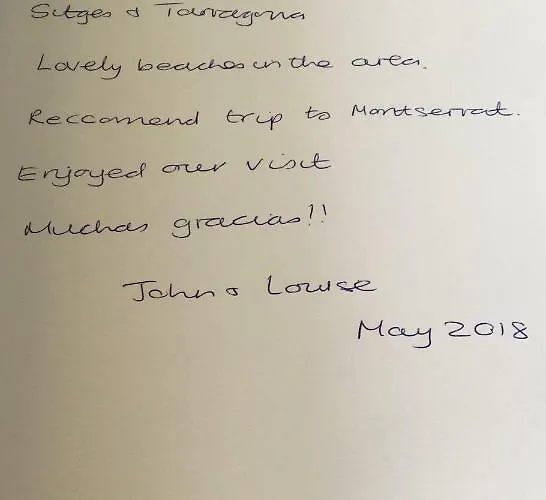 Sitges & Tarragona
Lovely beaches in the area.
Reccomend trip to Montserrat.
Enjoyed our visit
Muchas gracias!!
John & Louise
May 2018